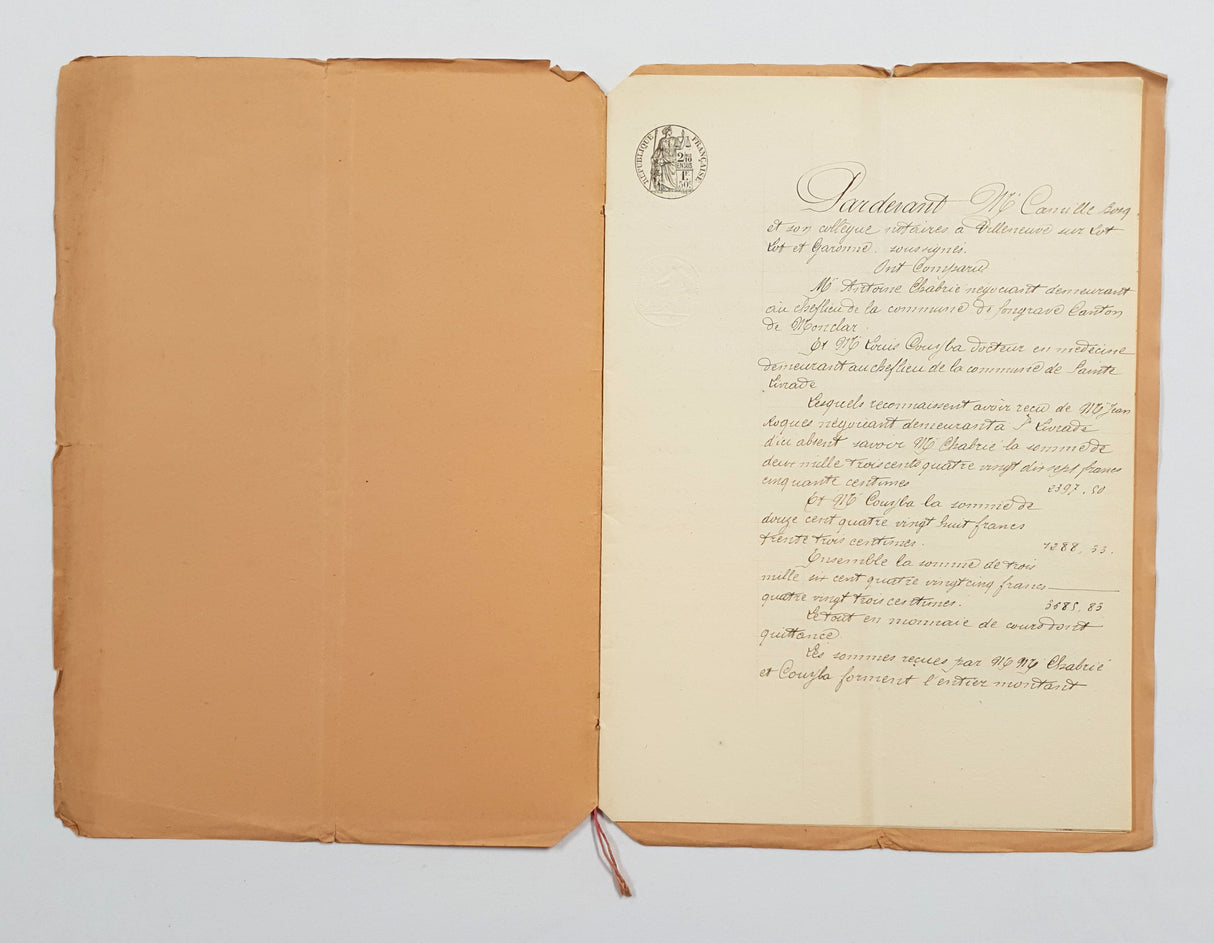 RÉPUBLIQUE FRANÇAISE
2 10
EN SUS
1F
50c
Pardevant Me Camille
et son collègue notaires à Villeneuve sur Lot
Lot et Garonne, soussignés.
Ont Comparu
Mr Antoine Chabrié négociant demeurant
au cheflieu de la commune de fongrave Canton
de Monclar.
Et Mr Louis Couyba docteur en médecine
demeurant au cheflieu de la commune de Sainte
Livrade
Lesquels reconnaissent avoir reçu de Mr Jean
Roques négociant demeurant à Ste Livrade
d'ici absent savoir Mr Chabrié la somme de
deux mille trois cents quatre vingt dix sept francs
cinquante centimes 2397.50
Et Mr Couyba la somme de
douze cent quatre vingt huit francs
trente trois centimes. 1288,33.
Ensemble la somme de trois
mille six cent quatre vingt cinq francs
quatre vingt trois centimes. 3685,83
Le tout en monnaie de cours dont
quittance.
Les sommes reçues par MMrs Chabrié
et Couyba forment l'entier montant